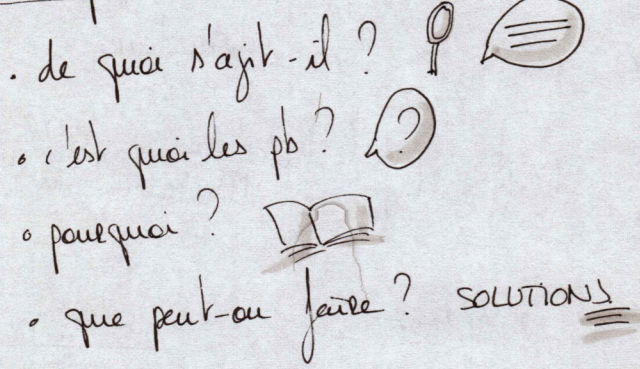 • de quoi s'agit-il ?
• c'est quoi les pb ? ?
• pourquoi ?
• que peut-on faire ? SOLUTIONS